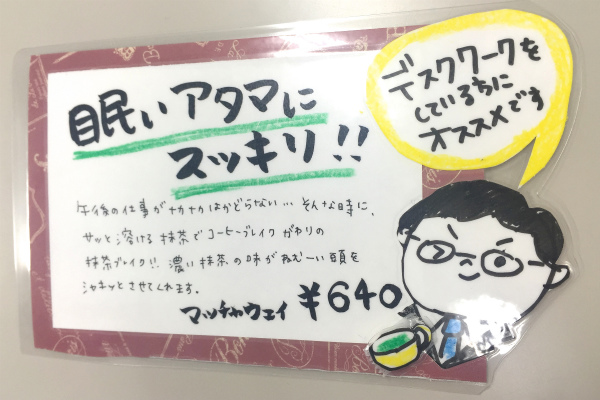 眠いアタマに
スッキリ!!
午後の仕事がナカナカはかどらない… そんな時に、
サッと溶ける抹茶でコーヒーブレイクがわりの
抹茶ブレイク!! 濃い抹茶の味がねむーい頭を
シャキッとさせてくれます。
マッチャウェイ ¥640
デスクワークを
しているちに
オススメです